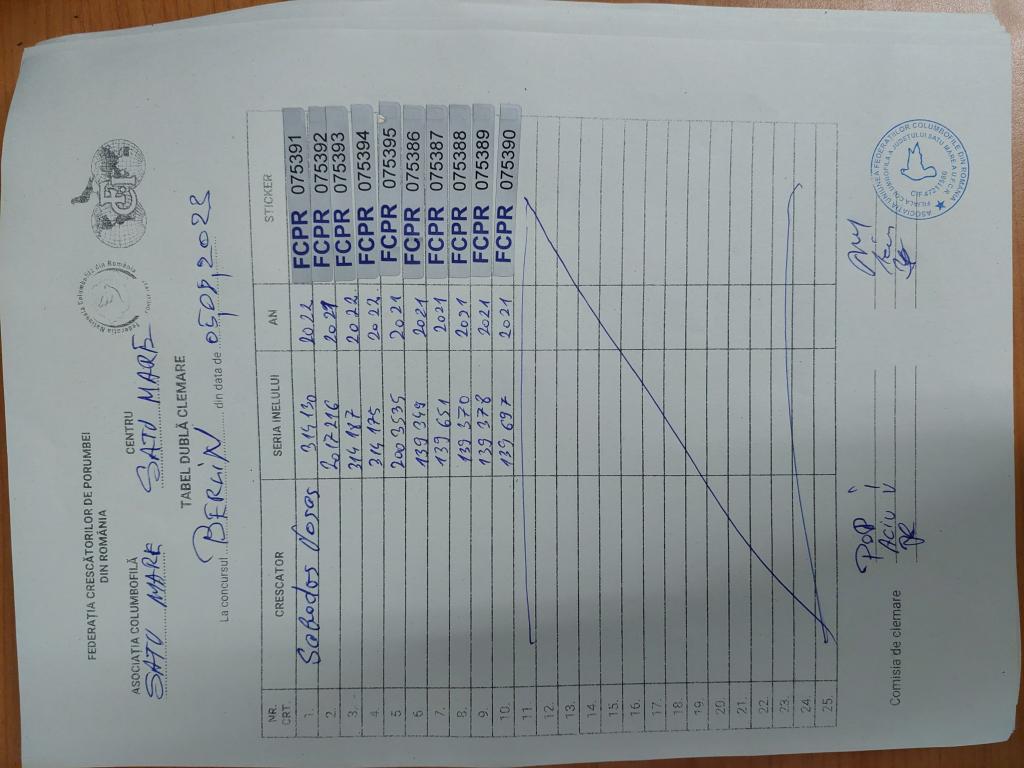 FEDERAȚIA CRESCĂTORILOR DE PORUMBEI
DIN ROMÂNIA
Federația Națională Columbofilă din România
FCI
ASOCIAȚIA COLUMBOFILĂ CENTRU
SATU MARE SATU MARE
TABEL DUBLĂ CLEMARE
La concursul BERLIN din data de 05.09,2023
NR. CRT. CRESCATOR SERIA INELULUI AN STICKER
1. 314130 2022 FCPR 075391
2. 2017216 2021 FCPR 075392
3. 314 187 2022 FCPR 075393
4. 314 175 2022 FCPR 075394
5 2003535 2021 FCPR 075395
6. 139 349 2021 FCPR 075386
7. 139 651 2021 FCPR 075387
8. 139 370 2021 FCPR 075388
9. 139 378 2021 FCPR 075389
10. 139 697 2021 FCPR 075390
11.
12.
13.
14.
15.
16.
17.
18.
19.
20.
21.
22.
23.
24.
25.
Comisia de clemare
POP
Aciu
ASOCIAȚIA UNIUNEA FEDERAȚIILOR COLUMBOFILE DIN ROMANIA
FILIALA COLUMBOFILA A JUDETULUI SATU MARE A U.F.C.R.